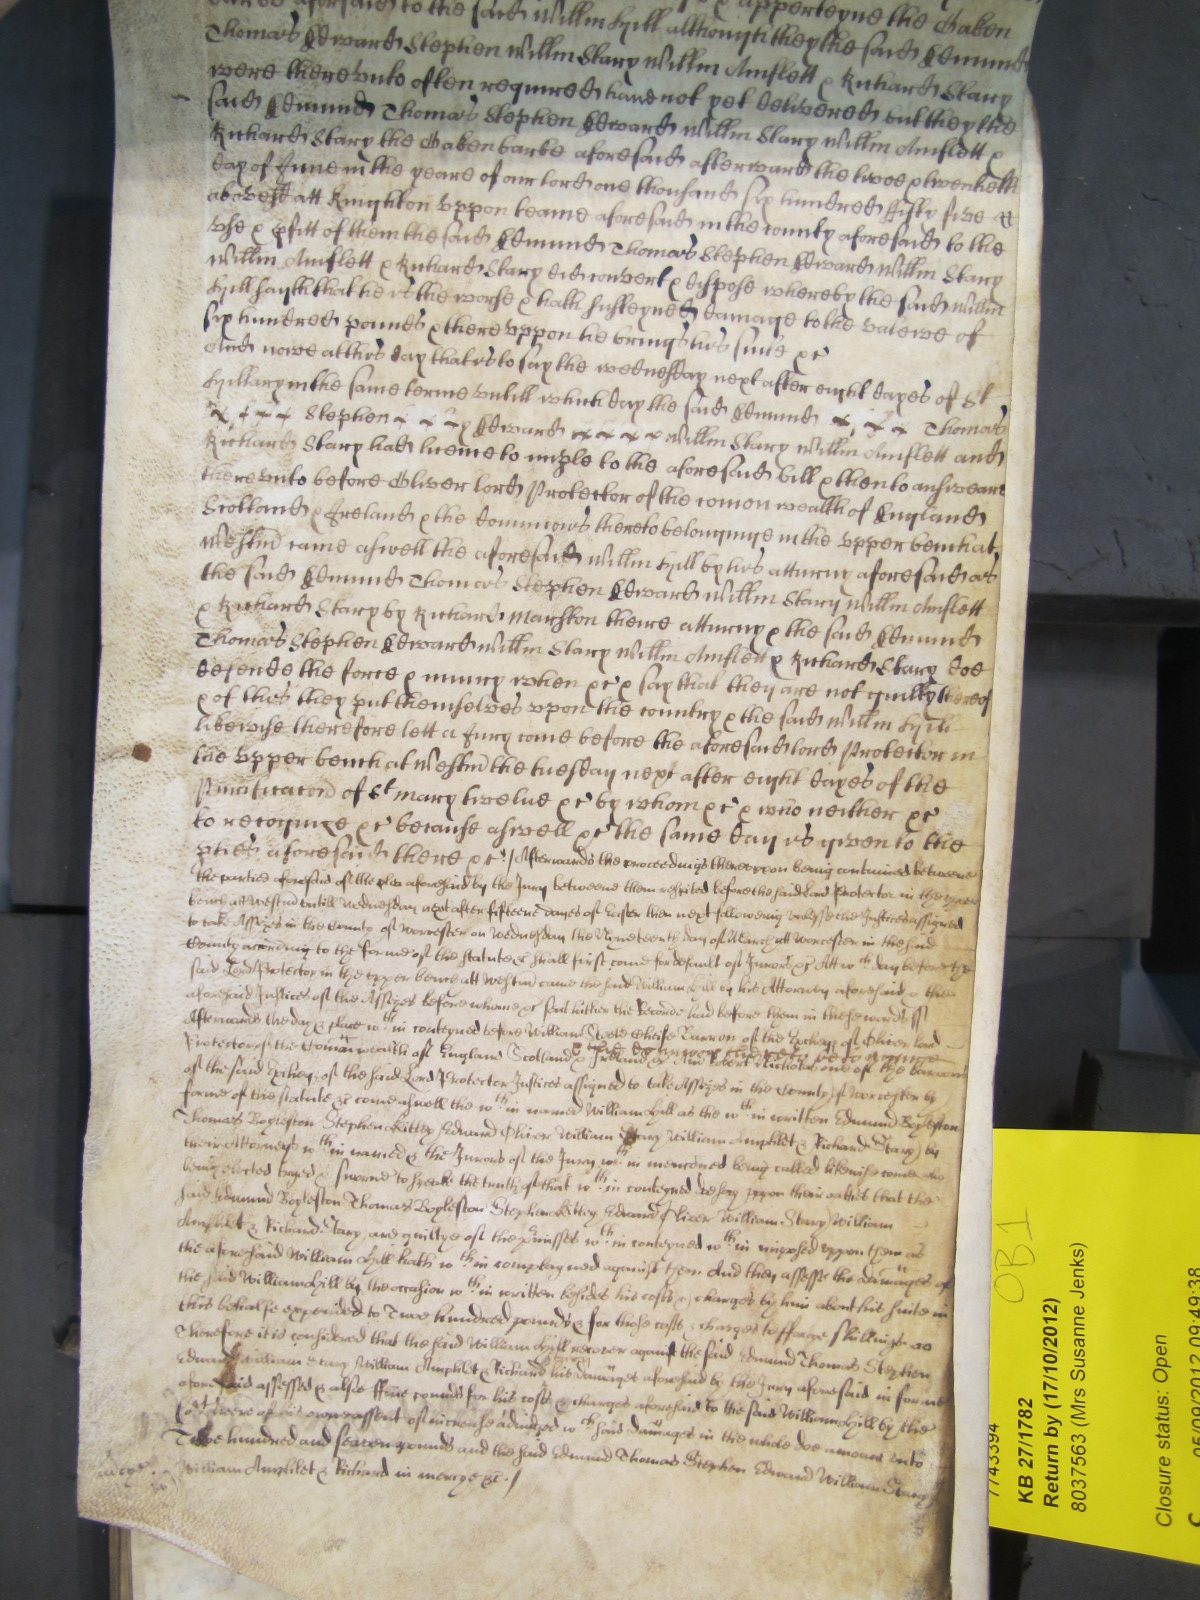 aforesaid to the said Willm Hill although they the said Edmund
Thomas Edward Stephen Willm Stacy Willm Amflett & Richard Stacy
were therevnto often required have not yet delivered but they the
said Edmund Thomas Stephen Edward Willm Stacy Willm Amflett &
Richard Stacy the aforesaid afterward the twoe & twentieth
day of June in the yeare of our lord one thousand six hundred fifty five
abovesd att Knighton vppon teame aforesaid in the county aforesaid to the
vse & pfitt of them the said Edmund Thomas Stephen Edward Willm Stacy
Willm Amflett & Richard Stacy did convert & dispose whereby the said Willm
Hill saith that he is the worse & hath susteyned damage to the valewe of
six hundred pounds & therevppon he brings his suite &c
And nowe at this day that is to say the wednesday next after eight dayes of St
Hillary in the same terme vntill which day the said Edmund Thomas
Stephen Edward Willm Stacy Willm Amflett and
Richard Stacy had licence to imple to the aforesaid bill & then to answeare
therevnto before Oliver lord Protector of the comon wealth of England
Scotland & Ireland & the dominions thereto belonginge in the vpper bench at
Westm came aswell the aforesaid Willm Hill by his atturny aforesaid as
the said Edmund Thomas Stephen Edward Willm Stacy Willm Amflett
& Richard Stacy by Richard Marston theire atturny & the said Edmund
Thomas Stephen Edward Willm Stacy Willm Amflett & Richard Stacy doe
defende the force & iniury when &c & say that they are not guilty thereof
& of this they put themselves vpon the country & the said Willm Hill
likewise therefore lett a Jury come before the aforesaid lord Protector in
the vpper bench at Westm the tuesday next after eight dayes of the
Purificacon of St mary twelue &c by whom &c & who neither &c
to recognize &c because aswell &c the same day is given to the
pties aforesaid there &c Afterwards the proceedings therevpon being continued betweene
the parties aforesaid of the plea aforesaid by the Jury betweene them respited before the said Lord Protector in the vpper
bench att Westm vntill Wednesday next after fifteene dayes of Easter then next followeing vnlesse the Justices assigned
to take Assizes in the County of Worcester on Wednesday the Nineteenth day of March att Worcester in the said
County according to the forme of the statute &c shall first come for default of Jurors &c Att wch day before the
said Lord Protector in the vpper bench att Westm came the said William Hill by his Attorney aforesaid & the
aforesaid Justices of the Assizes before whome &c sent hither the Recorde had before them in these words ss
Afterwards the day & place wthin conteyned before William Steele Cheife Barron of the Excheqr of Oliver Lord
Protector of the Comonwealth of England Scotland & Ireland & the dominions thereto belonginge And Robert Nicholas one of the barons
of the said Excheqr of the said Lord Protector Justices assigned to take Assizes in the County of Worcester by
forme of the statute &c come aswell the wthin named William Hill as the wthin written Edmund Boyleston
Thomas Boyleston Stephen Kittey Edward Oliver William Stacy William Amphlet & Richard Stacy by
their Attorneys wthin named & the Jurors of the Jury wthin mencioned being called likewise come who
being elected tryed & sworne to speake the truth of that wthin conteyned doe say vppon their oathes that the
said Edmund Boyleston Thomas Boyleston Stephen Kittey Edward Oliver William Stacy William
Amphlet & Richard Stacy are guiltye of the pmisses wthin conteyned wthin imposed vppon them as
the aforesaid William Hill hath wthin complayned against them And they assesse the damages of
the said William Hill by the occasion wthin written besides his costs & charges by him about his suite in
this behalfe expended to Two hundred pounds & for those costs & charges to shillings
Therefore it is considered that the said William Hill recover against the said Edmund Thomas Stephen
Edward William Stacy William Amphlet & Richard his damages aforesaid by the Jury aforesaid in forme
aforesaid assessed & alsoe pounds for his costs & charges aforesaid to the said William Hill by the
Court heere of his owne assent of increase adiudged wch said damages in the whole doe amount vnto
Two hundred and seaven pounds and the said Edmund Thomas Stephen Edward William Stacy
William Amphlet & Richard in mercye &c.
OB1
7743394
KB 27/1782
Return by (17/10/2012)
8037563 (Mrs Susanne Jenks)
Closure status: Open
05/09/2012 09:49:38